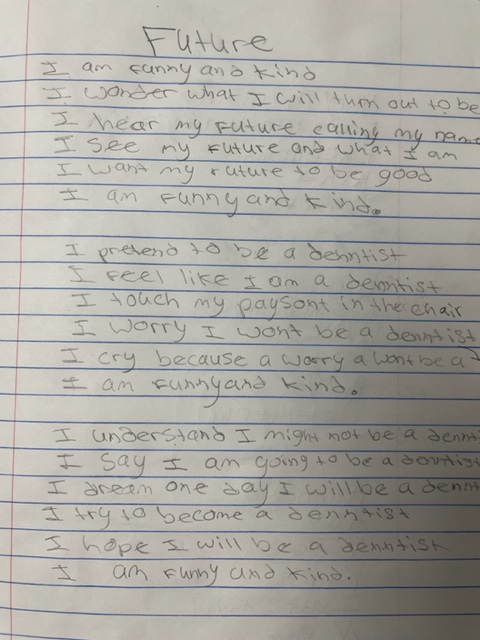 Future
I am funny and kind
I wonder what I will turn out to be
I hear my future calling my name
I see my future and what I am
I want my future to be good
I am funny and kind.
I pretend to be a denntist
I feel like I am a denntist
I touch my paysont in the chair
I worry I wont be a denntist
I cry because a worry a wont be a
I am funny and kind.
I understand I might not be a dennti
I say I am going to be a denntist
I dream one day I will be a dennt
I try to become a denntist
I hope I will be a denntist
I am funny and kind.